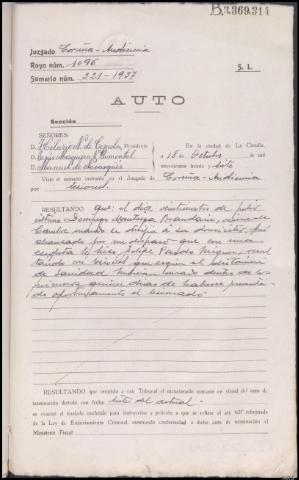 B.3.369.314
Juzgado Coruña - Audiencia
Royo núm. 1096
Sumario núm. 221-1937
S. L.
AUTO
Sección
SEÑORES:
D. Hilario N. de Cepeda, Presidente
D. Mosquera Pimentel
D. Manuel de
En la ciudad de La Coruña,
a 18 de Octubre de mil
novecientos treinta y siete
Visto el sumario instruido en el Juzgado de Coruña - Audiencia
por lesiones.
RESULTANDO que: el día veintinueve de julio
último Domingo Mantiñga Brandariz, vecino de
Cambre cuando se dirigía a su domicilio, fué
alcanzado por un disparo que con una
escopeta le hizo Felipe Pardo
lesiones que según el dictamen
de sanidad curado dentro de los
quince días de haberse
el lesionado
RESULTANDO que remitido a este Tribunal el mencionado sumario en virtud del auto de
terminación dictado con fecha siete del actual.
se evacuó el traslado conferido para instrucción y petición a que se refiere el art. 627 reformado
de la Ley de Enjuiciamiento Criminal, mostrando conformidad a dicho auto de terminación el
Ministerio Fiscal